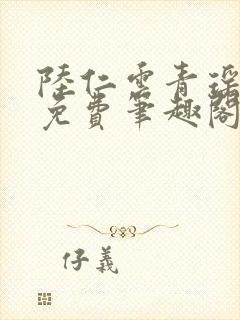 陸仁雲青瑤
免費筆趣閣
仔義